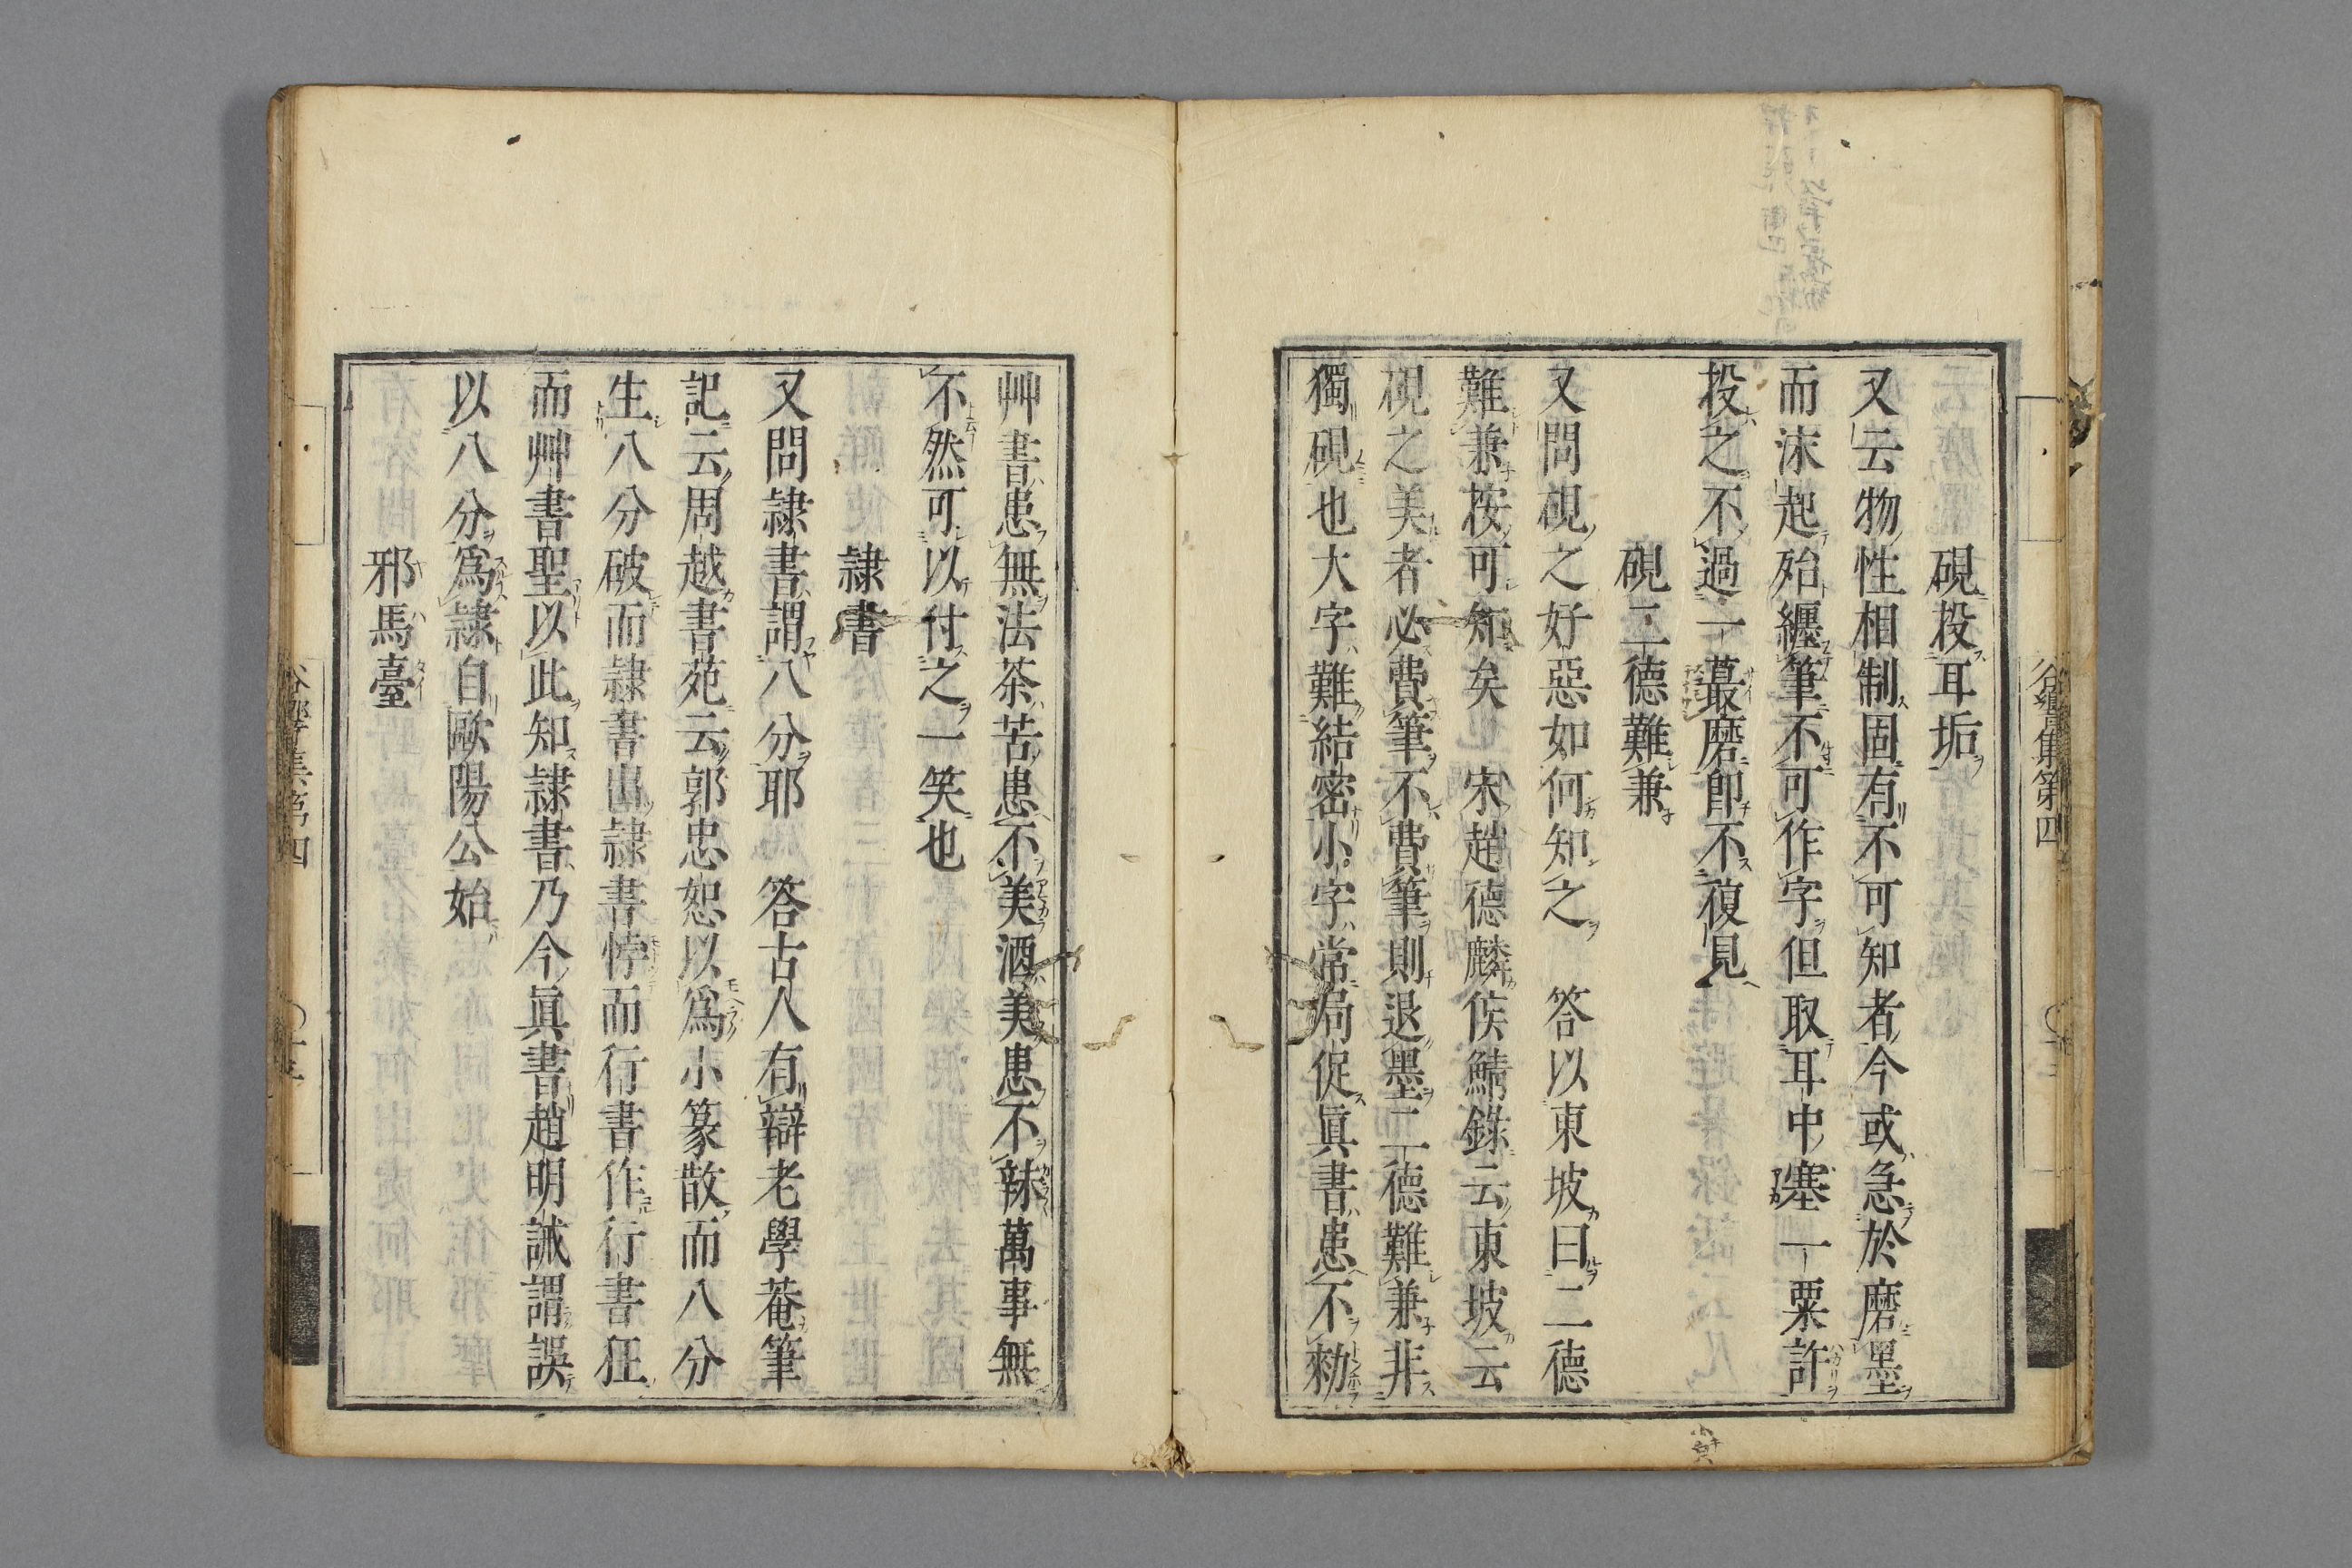 硯投耳垢
又云物性相制固有不可知者今或急於磨墨
而沫起殆纏筆不可作字但取耳中塞一粟許
投之不過一蕞磨卽不復見
硯二德難兼
又問硯之好惡如何知之　答以東坡曰二德
難兼按可知矣　宋趙德麟侯鯖錄云東坡云
硯之美者必費筆不費筆則退墨二德難兼非
獨硯也大字難結密小字常局促眞書患不勑
艸書患無法茶苦患不美酒美患不辣萬事無
不然可以付之一笑也
隷書
又問隷書謂八分耶　答古人有辯老學菴筆
記云周越書苑云郭忠恕以爲小篆散而八分
生八分破而隷書出隷書悖而行書作行書狂
而艸書聖以此知隷書乃今眞書趙明誠謂誤
以八分爲隷自歐陽公始
邪馬臺
谷響集第四
谷響集第四